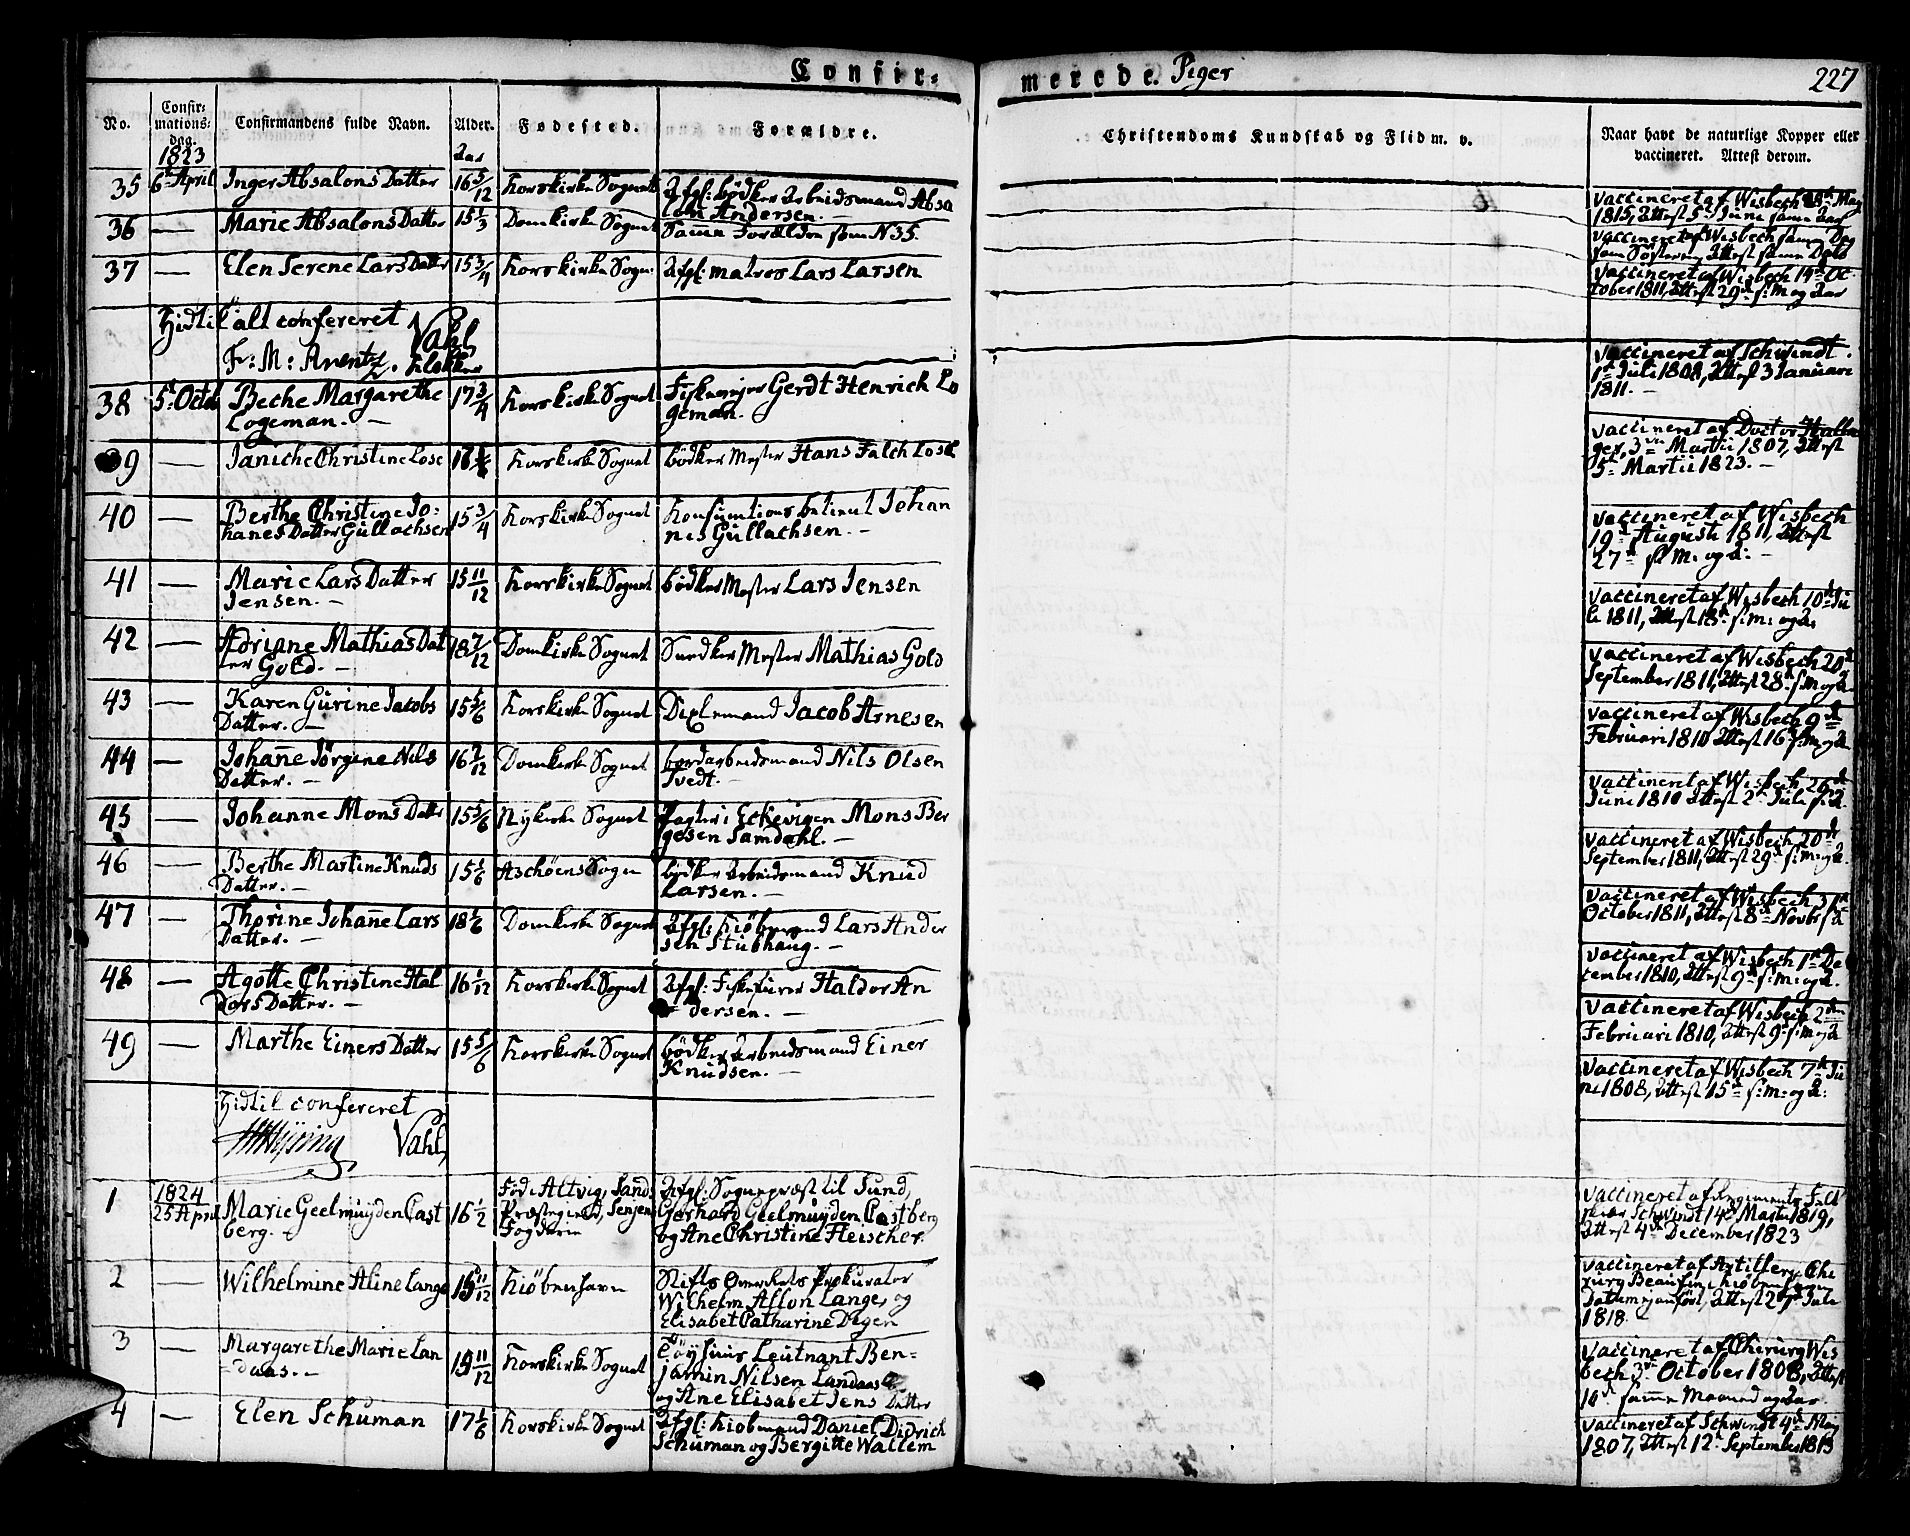 Confir=
merede. Piger
227
No.
Confir=
mations=
dag.
Confirmandens fulde Navn.
Alder.
Fødested.
Forældre.
Christendoms Kundskab og Flid m. v.
Naar havt de naturlige Kopper eller
vaccineret. Attest derom.
1823
Aar
35 6te April Inger Absalons Datter 16 5/12 Korskirke Sognet Afgl: bødker Arbeidsmand Absa
lon Andersen. —
vaccineret af Wisbech
1815, Attest 5te Juni samme Aar
36 — Marie Absalons Datter 15 1/3 Domkirke Sognet Samme Forældre som N 35.
vaccineret af Wisbech samme Dag
som Søsteren, Attest samme Dato
37 — Elen Serene Lars Datter 15 3/4 Korskirke Sogn: Afgl: matros Lars Larsen
vaccineret af Wisbech 19de Oc
tober 1811, Attest 29de s: M og Aar
Hidtil alt confereret Vahl
Fr: M: Arentz. Klokker
38 5te Octbr Beche Margarethe 17 3/4 Korskirke Sognet Fiskeveyer Gerdt Henrich Lo
Logeman. — geman.
vaccineret af Schwindt
1ste Juli 1808, Attest 3 Januari
1811. —
39 — Janiche Christine Lose 17 Korskirke Sognet bødker Mester Hans Falch Lose
vaccineret af Doctor
3de Martii 1807, Attest
5te Martii 1823. —
40 — Berthe Christine Jo= 15 3/4 Korskirke Sognet Konsumtions betient Johan
hanes Datter Gullachsen nes Gullachsen. —
vaccineret af Wisbech
19de Augusti 1811, Attest
27de s: M: og A: —
41 — Marie Lars Datter 15 11/12 Korskirke Sognet bødker Mester Lars Jensen
Jensen. —
vaccineret af Wisbech 10de Ju
li 1811, Attest 18de s: M: og A:
42 — Adriane Mathias Dat 18 7/12 Domkirke Sognet Snedker Mester Mathias Gold
ter Gold. —
vaccineret af Wisbech 20de
September 1811, Attest 28de s: M og A
43 — Karen Gurine Jacobs 15 5/6 Korskirke Sognet Dixlemand Jacob Arnesen
Datter. —
vaccineret af Wisbech 9de
Februari 1810 Attest 16de s: M og A
44 — Johanne Jørgine Nils 16 7/12 Domkirke Sognet bordarbeidsmand Nils Olsen
Datter. — Tvedt. —
vaccineret af Wisbech 26de
Juni 1810 Attest 2den Juli s: A.
45 — Johanne Mons Datter 15 5/6 Nykirke Sognet Pagter i Eckevigen Mons Ber
gesen Samdahl. —
vaccineret af Wisbech 20de
September 1811, Attest 29de s: M: og A.
46 — Berthe Martine Knuds 15 1/6 Aschøens Sogn bødker Arbeidsmand Knud
Datter. — Larsen. —
vaccineret af Wisbech 31te
October 1811, Attest 8de Novbr s: A
47 — Thorine Johanne Lars 18 1/6 Domkirke Sognet Afgl: Kiøbmand Lars Ander
Datter. — sen Stubhaug. —
vaccineret af Wisbech 1ste De
cember 1810, Attest 9de s: M: og A.
48 — Agotte Christine Hal 16 1/12 Korskirke Sognet Afgl: Fiskefører Haldor An
dors Datter. — dersen. —
vaccineret af Wisbech 2den
Februari 1810, Attest 9de s: M og A
49 — Marthe Einers Datter 15 5/6 Korskirke Sognet bødker Arbeidsmand Einer
Knudsen. —
vaccineret af Wisbech 7de Ju
ni 1808, Attest 15de s: M: og A:
Hidtil confereret
Vahl,
1824
1 25 April Marie Geelmuyden Cast 16 1/2 Fød i Altvig, Sands Afgl: Sognepræst til Sund,
berg. — Præstegield, Senjens Gerhard Geelmuyden Castberg
Fogderie og Ane Christine Fleischer.
vaccineret af Regiments Felt
skiær Schwindt 14de Martii 1819,
Attest 4de December 1823
2 — Wilhelmine Aline Lange 15 11/12 Kiøbenhavn Stifts Overrets Prokurator
Wilhelm Allon Lange, og
Elisabet Catharine Degen
vaccineret af Artillerie Chi
rurg Beaufin i Kiøbenhavn
Datum ej anført, Attest 27de Juli
1818. —
3 — Margarethe Marie Lan 15 11/12 Korskirke Sognet Tøyhuus Leutnant Ben=
=daas. — jamin Nilsen Landaas
og Ane Elisabet Jens Datter
vaccineret af Chirurg Wis
bech 3de October 1808, Attest
10de samme Maaned og Aar
4 — Elen Schuman 17 1/6 Korskirke Sognet Afgl: Kiobmand Daniel Didrich
Schuman og Bergitte Wallem
vaccineret af Schwindt 4de Maj
1807, Attest 12te September 1813